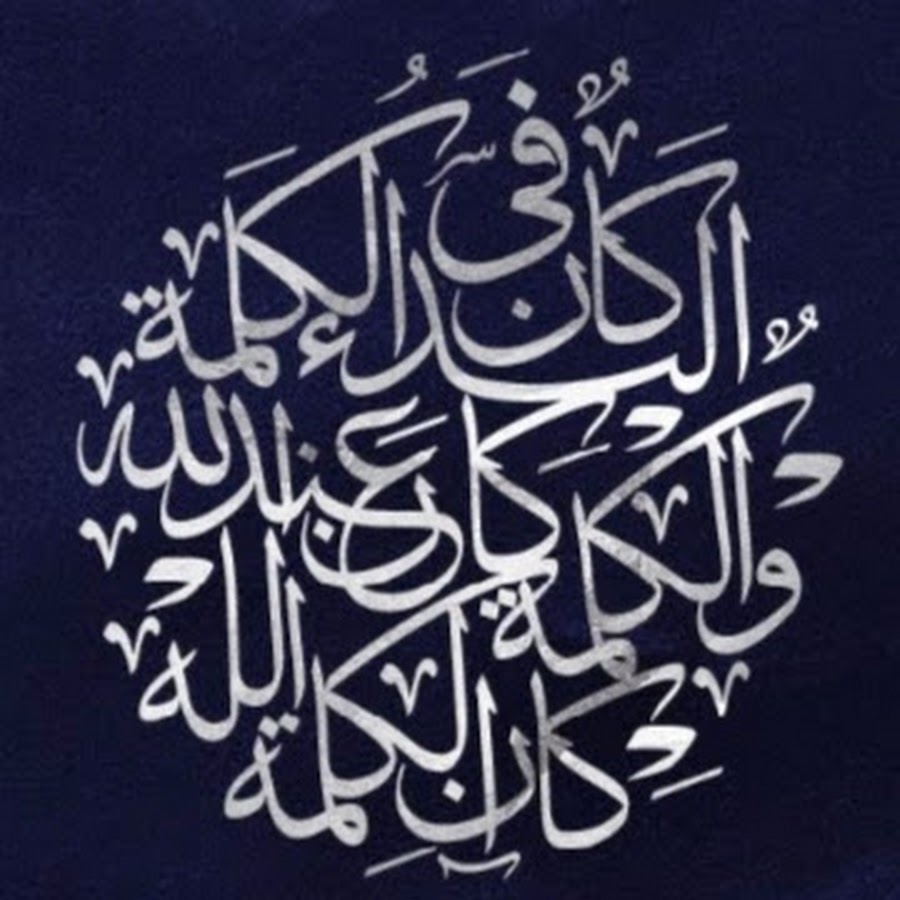 في البدء كان الكلمة
والكلمة كان عند الله
كان الكلمة الله